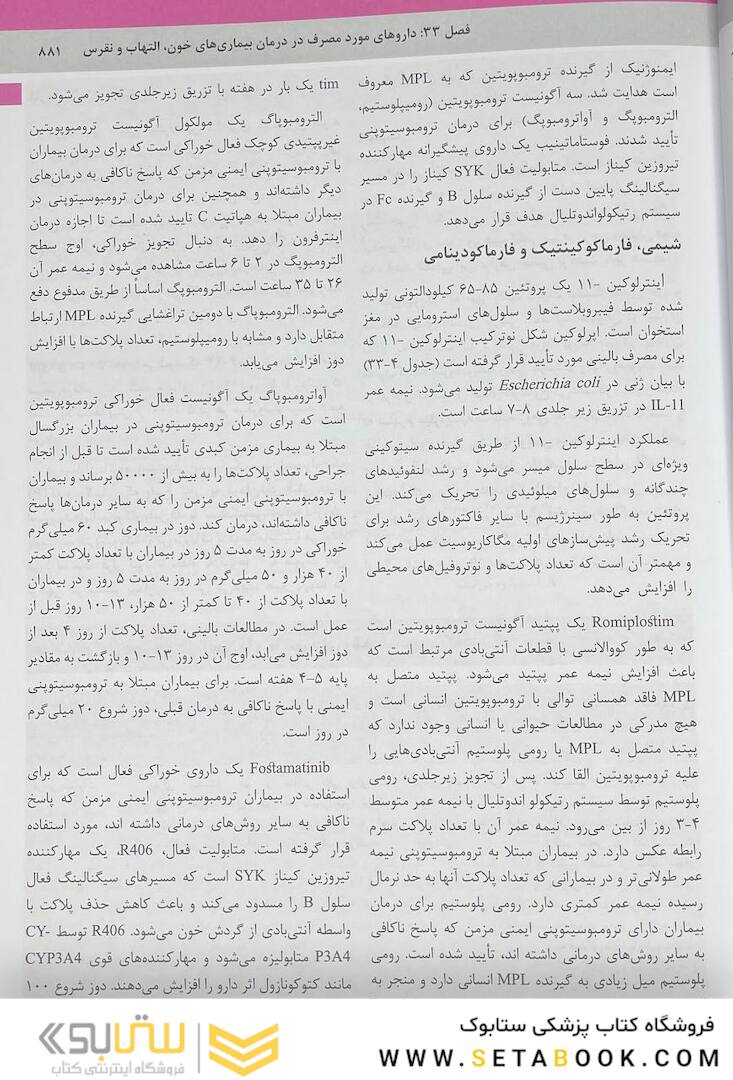 فصل ۳۳: داروهای مورد مصرف در درمان بیماری‌های خون، التهاب و نقرس ۸۸۱
ایمنوژنیک از گیرنده ترومبوپویتین که به MPL معروف
است هدایت شد. سه آگونیست ترومبوپویتین (رومیپلوستیم،
الترومبوپگ و آواترومبوپگ) برای درمان ترومبوسیتوپنی
تأیید شدند. فوستاماتینیب یک داروی پیشگیرانه مهارکننده
تیروزین کیناز است. متابولیت فعال SYK کیناز را در مسیر
سیگنالینگ پایین دست از گیرنده سلول B و گیرنده Fc در
سیستم رتیکولواندوتلیال هدف قرار می‌دهد.
شیمی، فارماکوکینتیک و فارماکودینامی
اینترلوکین -۱۱ یک پروتئین ۸۵-۶۵ کیلودالتونی تولید
شده توسط فیبروبلاست‌ها و سلول‌های استرومایی در مغز
استخوان است. اپرلوکین شکل نوترکیب اینترلوکین -۱۱ که
برای مصرف بالینی مورد تأیید قرار گرفته است (جدول ۴-۳۳)
با بیان ژنی در Escherichia coli تولید می‌شود. نیمه عمر
IL-11 در تزریق زیر جلدی ۸-۷ ساعت است.
عملکرد اینترلوکین -۱۱ از طریق گیرنده سیتوکینی
ویژه‌ای در سطح سلول میسر می‌شود و رشد لنفوئیدهای
چندگانه و سلول‌های میلوئیدی را تحریک می‌کند. این
پروتئین به طور سینرژیسم با سایر فاکتورهای رشد برای
تحریک رشد پیش‌سازهای اولیه مگاکاریوسیت عمل می‌کند
و مهمتر آن است که تعداد پلاکت‌ها و نوتروفیل‌های محیطی
را افزایش می‌دهد.
Romiplostim یک پپتید آگونیست ترومبوپویتین است
که به طور کووالانسی با قطعات آنتی‌بادی مرتبط است که
باعث افزایش نیمه عمر پپتید می‌شود. پپتید متصل به
MPL فاقد همسانی توالی با ترومبوپویتین انسانی است و
هیچ مدرکی در مطالعات حیوانی یا انسانی وجود ندارد که
پپتید متصل به MPL یا رومی پلوستیم آنتی‌بادی‌هایی را
علیه ترومبوپویتین القا کند. پس از تجویز زیرجلدی، رومی
پلوستیم توسط سیستم رتیکولو اندوتلیال با نیمه عمر متوسط
۴-۳ روز از بین می‌رود. نیمه عمر آن با تعداد پلاکت سرم
رابطه عکس دارد. در بیماران مبتلا به ترومبوسیتوپنی نیمه
عمر طولانی‌تر و در بیمارانی که تعداد پلاکت آنها به حد نرمال
رسیده نیمه عمر کمتری دارد. رومی پلوستیم برای درمان
بیماران دارای ترومبوسیتوپنی ایمنی مزمن که پاسخ ناکافی
به سایر روش‌های درمانی داشته اند، تأیید شده است. رومی
پلوستیم میل زیادی به گیرنده MPL انسانی دارد و منجر به
tim یک بار در هفته با تزریق زیرجلدی تجویز می‌شود.
الترومبوپاگ یک مولکول آگونیست ترومبوپویتین
غیرپپتیدی کوچک فعال خوراکی است که برای درمان بیماران
با ترومبوسیتوپنی ایمنی مزمن که پاسخ ناکافی به درمان‌های
دیگر داشته‌اند و همچنین برای درمان ترومبوسیتوپنی در
بیماران مبتلا به هپاتیت C تایید شده است تا اجازه درمان
اینترفرون را دهد. به دنبال تجویز خوراکی، اوج سطح
الترومبوپگ در ۲ تا ۶ ساعت مشاهده می‌شود و نیمه عمر آن
۲۶ تا ۳۵ ساعت است. الترومبوپگ اساساً از طریق مدفوع دفع
می‌شود. الترومبوپاگ با دومین تراغشایی گیرنده MPL ارتباط
متقابل دارد و مشابه با رومیپلوستیم، تعداد پلاکت‌ها با افزایش
دوز افزایش می‌یابد.
آواترومبوپاگ یک آگونیست فعال خوراکی ترومبوپویتین
است که برای درمان ترومبوسیتوپنی در بیماران بزرگسال
مبتلا به بیماری مزمن کبدی تأیید شده است تا قبل از انجام
جراحی، تعداد پلاکت‌ها را به بیش از ۵۰۰۰۰ برساند و بیماران
با ترومبوسیتوپنی ایمنی مزمن را که به سایر درمان‌ها پاسخ
ناکافی داشته‌اند، درمان کند. دوز در بیماری کبد ۶۰ میلی‌گرم
خوراکی در روز به مدت ۵ روز در بیماران با تعداد پلاکت کمتر
از ۴۰ هزار و ۵۰ میلی‌گرم در روز به مدت ۵ روز و در بیماران
با تعداد پلاکت از ۴۰ تا کمتر از ۵۰ هزار، ۱۳-۱۰ روز قبل از
عمل است. در مطالعات بالینی، تعداد پلاکت از روز ۴ بعد از
دوز افزایش می‌ابد، اوج آن در روز ۱۳-۱۰ و بازگشت به مقادیر
پایه ۵-۴ هفته است. برای بیماران مبتلا به ترومبوسیتوپنی
ایمنی با پاسخ ناکافی به درمان قبلی، دوز شروع ۲۰ میلی‌گرم
در روز است.
Fostamatinib یک داروی خوراکی فعال است که برای
استفاده در بیماران ترومبوسیتوپنی ایمنی مزمن که پاسخ
ناکافی به سایر روش‌های درمانی داشته اند، مورد استفاده
قرار گرفته است. متابولیت فعال، R406، یک مهارکننده
تیروزین کیناز SYK است که مسیرهای سیگنالینگ فعال
سلول B را مسدود می‌کند و باعث کاهش حذف پلاکت با
واسطه آنتی‌بادی از گردش خون می‌شود. R406 توسط CY-
P3A4 متابولیزه می‌شود و مهارکننده‌های قوی CYP3A4
مانند کتوکونازول اثر دارو را افزایش می‌دهند. دوز شروع ۱۰۰
فروشگاه کتاب پزشکی ستابوک
WWW.SETABOOK.COM
ستابوک
فروشگاه اینترنتی کتاب